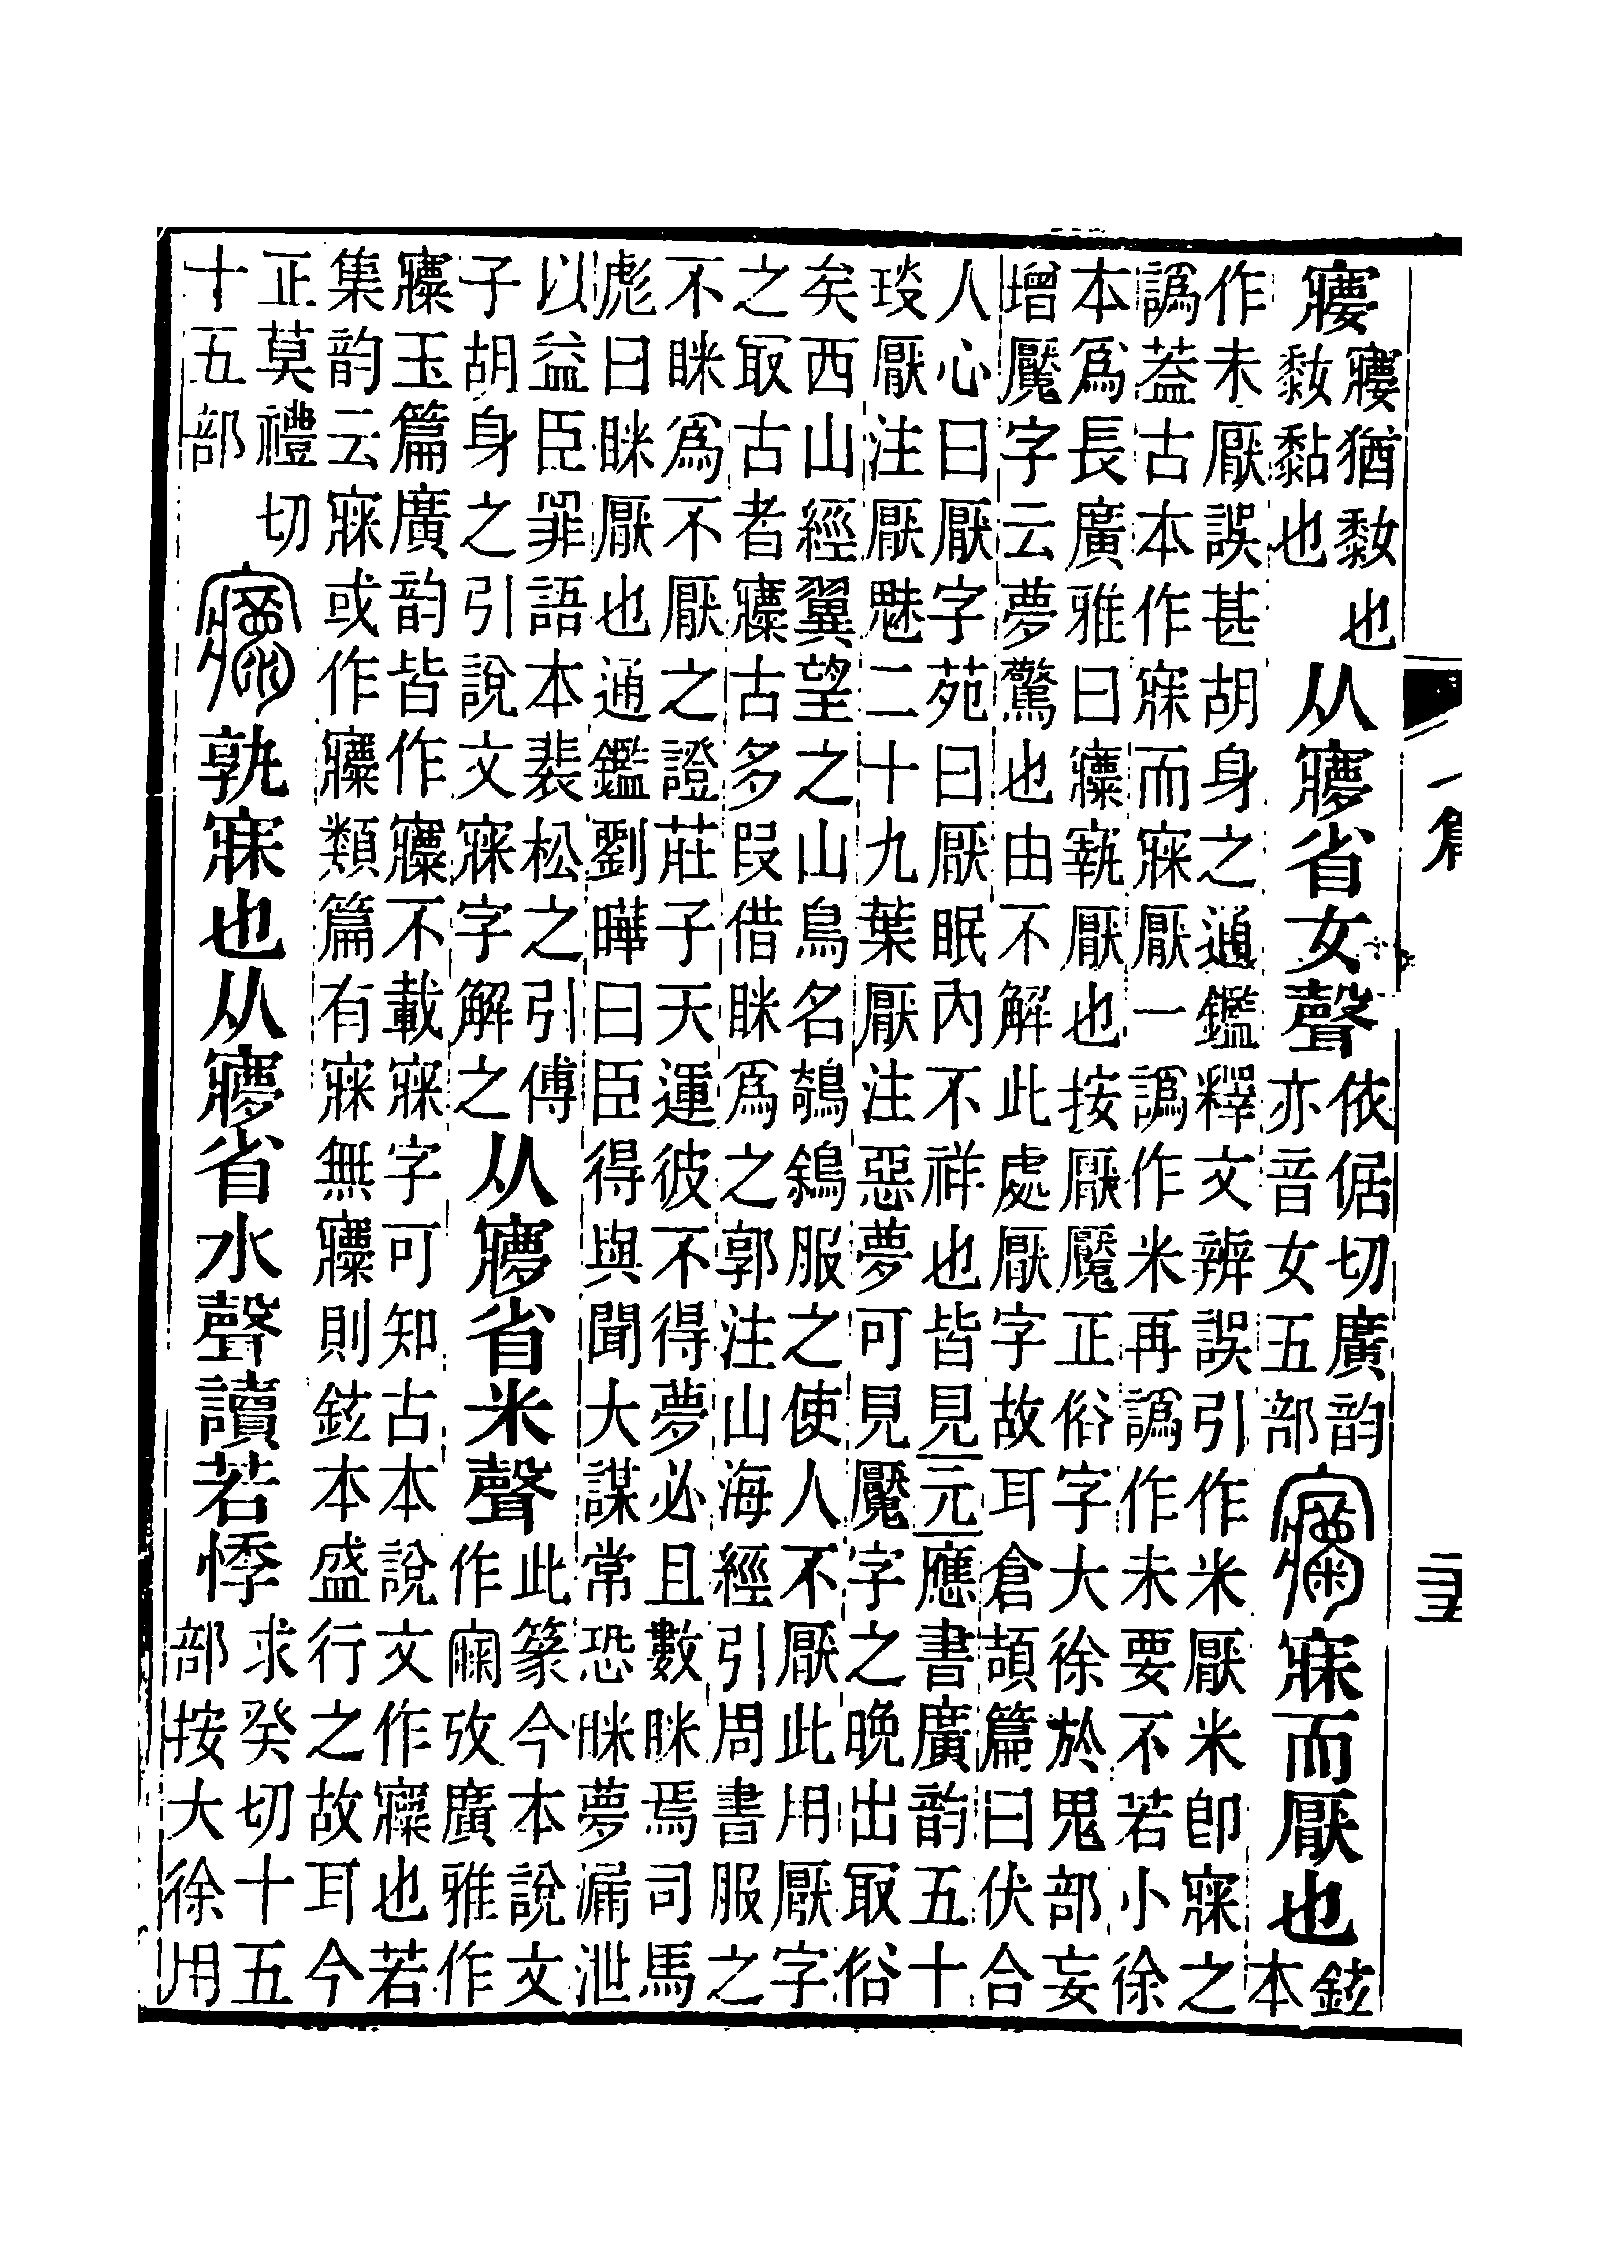 㝧
㝧猶𪏮也
𪏮黏也
从㝱省女聲
依倨切廣韵
亦音女五部
㝥
寐而厭也
鉉
本
作未厭誤甚胡身之通鑑釋文辨誤引作米厭米卽寐之
譌蓋古本作寐而寐厭一譌作米再譌作未要不若小徐
本爲長廣雅曰㝥厭也按厭魘正俗字大徐於鬼部妄
增魘字云夢驚也由不解此處厭字故耳倉頡篇曰伏合
人心曰厭字苑曰厭眠內不祥也皆見元應書廣韵五十
琰厭注厭魅二十九葉厭注惡夢可見魘字之晚出取俗
矣西山經翼望之山鳥名鵸鵌服之使人不厭此用厭字
之取古者㝥古多叚借眯爲之郭注山海經引周書服之
不眯爲不厭之證莊子天運彼不得夢必且數眯焉司馬
彪曰眯厭也通鑑劉曄曰臣得與聞大謀常恐眯夢漏泄
以益臣罪語本裴松之引傅
子胡身之引說文寐字解之
从㝱省米聲
此篆今本說文
作攷廣雅作
㝥玉篇廣韵皆作㝥不載寐字可知古本說文作㝥也若
集韵云寐或作㝥類篇有寐無㝥則鉉本盛行之故耳今
正莫禮切
十五部
孰寐也从㝱省水聲讀若悸
求癸切十五
部按大徐用